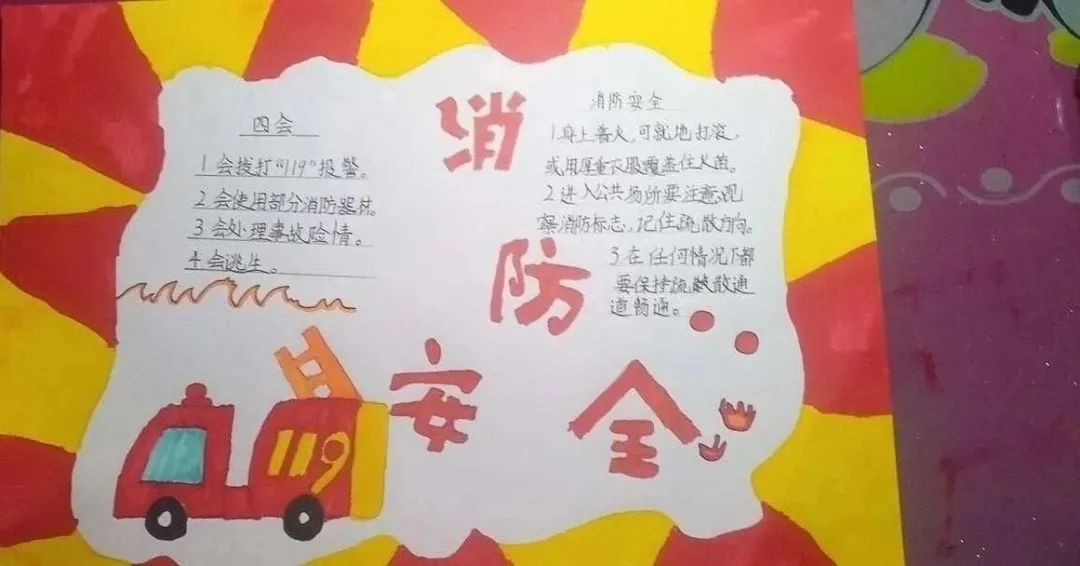 消防安全
四会
1 会拨打“119”报警。
2 会使用部分消防器材。
3 会处理事故险情。
4 会逃生。
消防安全
1 身上着火,可就地打滚,
或用厚重衣服覆盖住火苗。
2 进入公共场所要注意观
察消防标志,记住疏散方向。
3 在任何情况下都
要保持疏散通
道畅通。
119